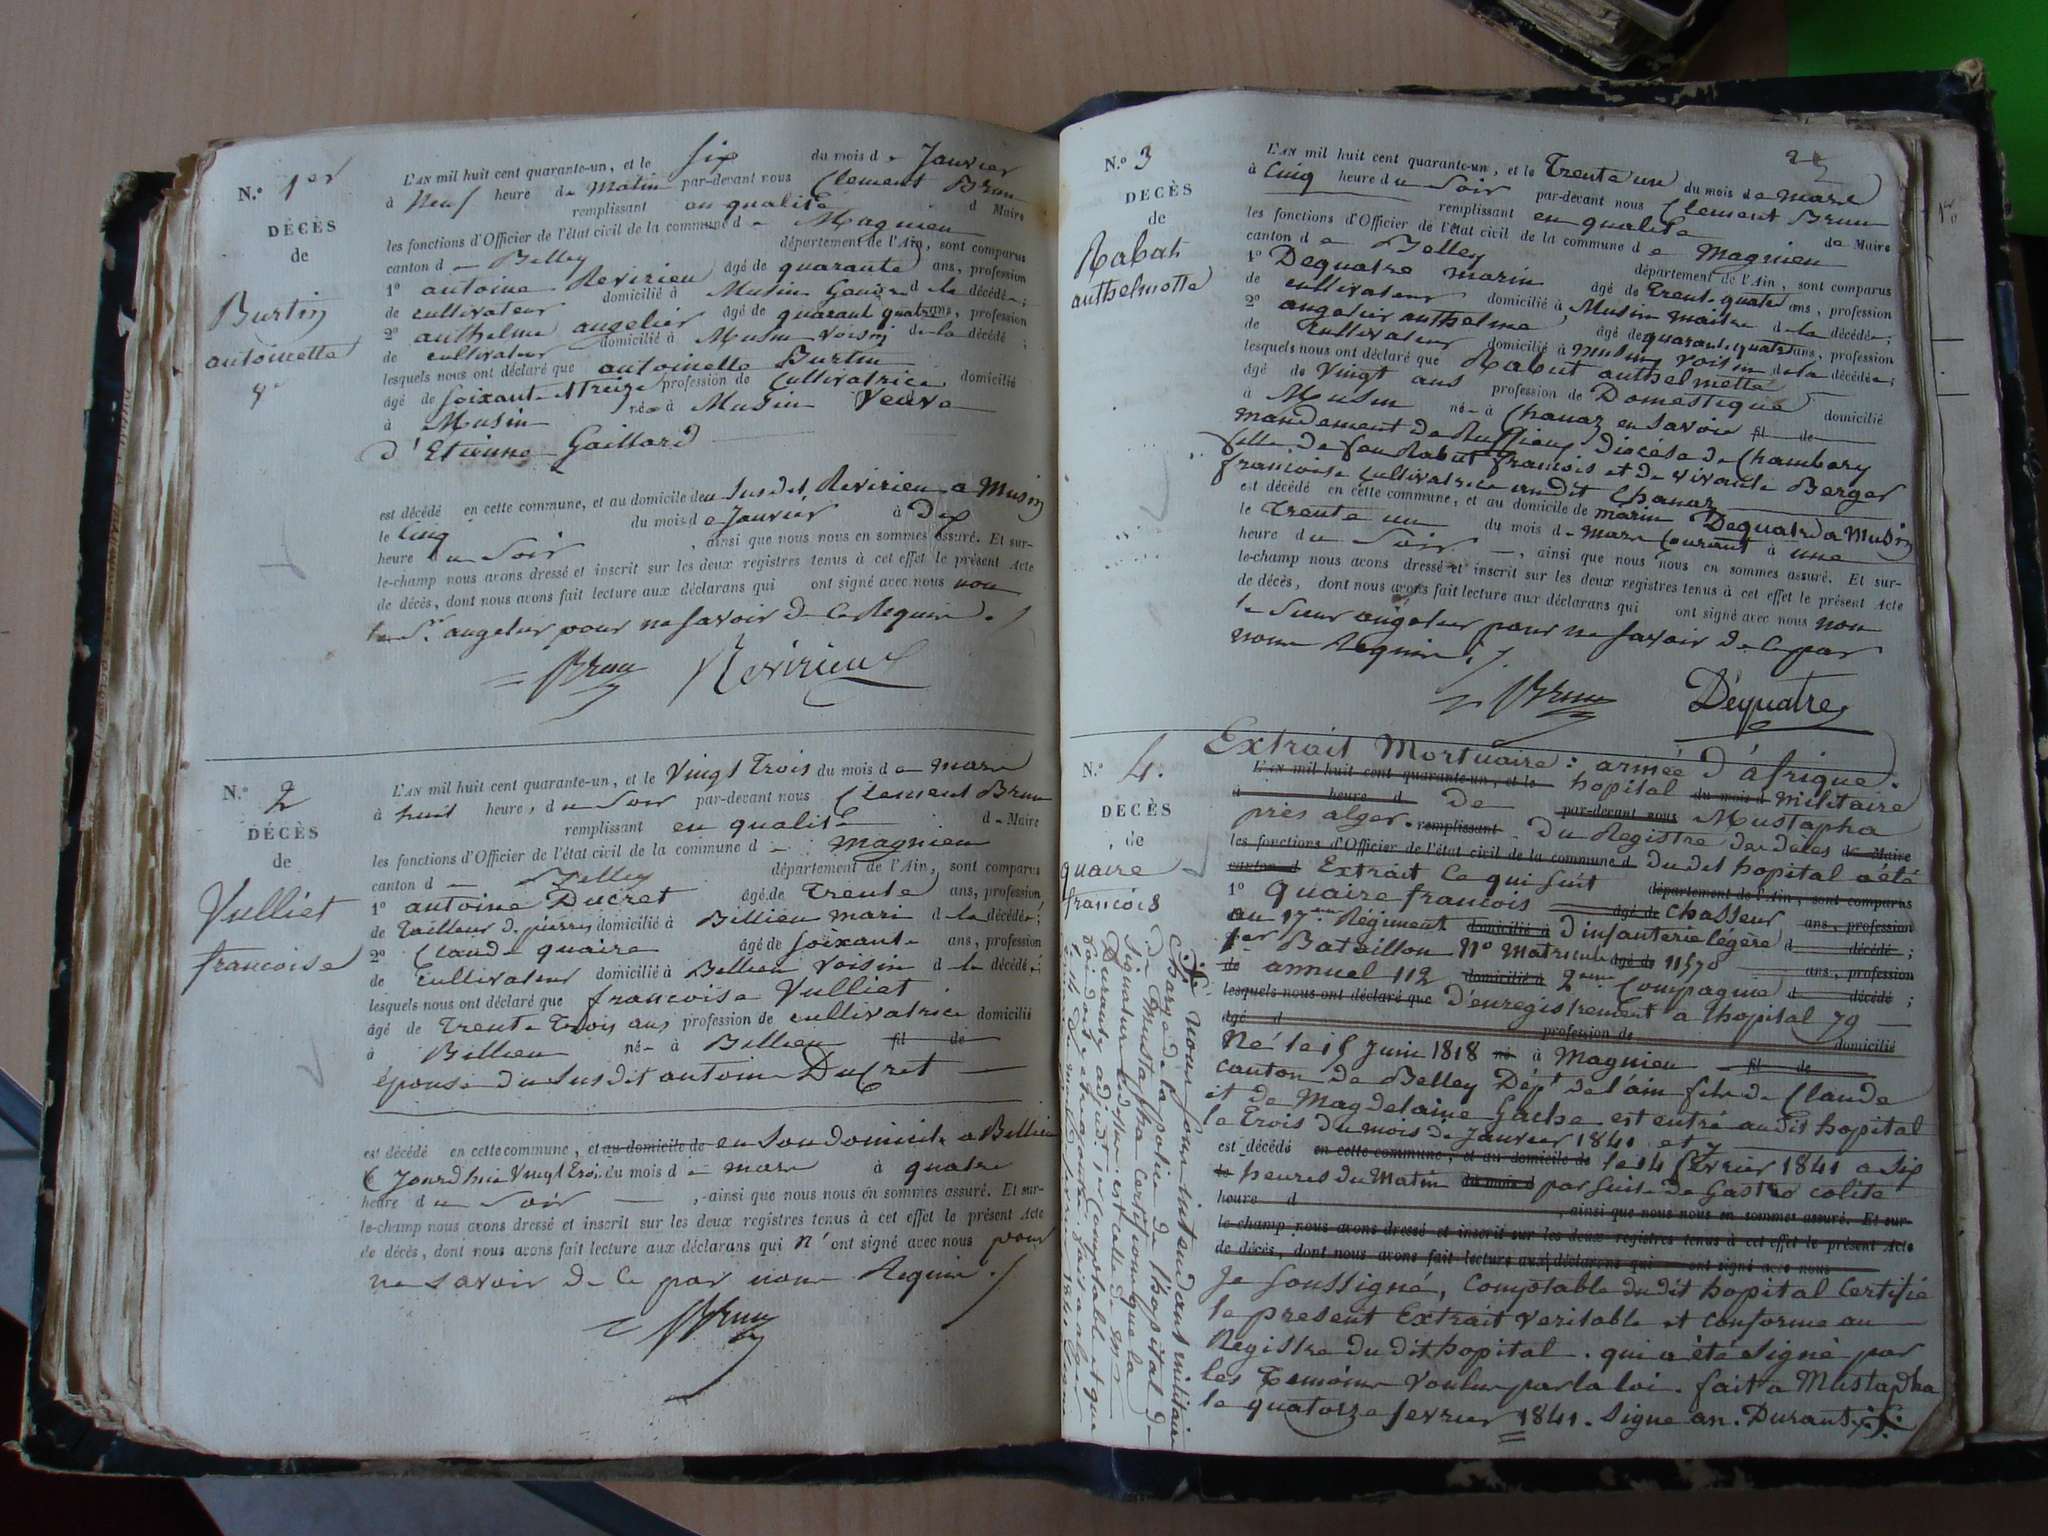 N.° 1er
DÉCÈS
de
Burtin
antoinette
L'AN mil huit cent quarante-un, et le six du mois d e Janvier
à Neuf heure du Matin par-devant nous Clement Brun
remplissant en qualité d Maire
les fonctions d'Officier de l'état civil de la commune d e Magnieu
canton d Belley département de l'Ain, sont comparus
1° antoine Revirieu âgé de quarante ans, profession
de cultivateur domicilié à Musin Gendre d la décédée;
2° anthelme angelier âgé de quarant quatre ans, profession
de cultivateur domicilié à Musin voisin de la décédé;
lesquels nous ont déclaré que antoinette Burtin
âgé de soixante treize profession de Cultivatrice domicilié
à Musin née à Musin veuve
d'Etienne Gaillard
est décédé en cette commune, et au domicile deu susdit Revirieu a Musin
le Cinq du mois d e Janvier à Dix
heure du Soir, ainsi que nous nous en sommes assuré. Et sur-
le-champ nous avons dressé et inscrit sur les deux registres tenus à cet effet le présent Acte
de décès, dont nous avons fait lecture aux déclarans qui ont signé avec nous non
le Sr. angelier pour ne savoir de ce Requis.
Brun Revirieu
N.° 2
DÉCÈS
de
Vulliet
francoise
L'AN mil huit cent quarante-un, et le Vingt trois du mois d e mars
à huit heure, du Soir par-devant nous Clement Brun
remplissant en qualité d e Maire
les fonctions d'Officier de l'état civil de la commune d magnieu
canton d Belley département de l'Ain, sont comparus
1° antoine Ducret âgé de trente ans, profession
de tailleur de pierres domicilié à Billieu mari d la décédée;
2° Claude quaire âgé de soixante ans, profession
de cultivateur domicilié à Billieu voisin d la décédée;
lesquels nous ont déclaré que francoise Vulliet
âgé de trente trois ans profession de cultivatrice domicilié
à Billieu née à Billieu fil de
épouse du susdit antoine Ducret
est décédé en cette commune, et au domicile de en son domicile a Billieu
Ce Jourdhui Vingt trois du mois d e mars à quatre
heure du Soir, ainsi que nous nous en sommes assuré. Et sur-
le-champ nous avons dressé et inscrit sur les deux registres tenus à cet effet le présent Acte
de décès, dont nous avons fait lecture aux déclarans qui n'ont signé avec nous pour
ne savoir de ce par nous Requis.
Brun
N.° 3
DÉCÈS
de
Rabut
anthelmette
L'AN mil huit cent quarante-un, et le Trente un du mois de mars
à Cinq heure du Soir par-devant nous Clement Brun
remplissant en qualité de Maire
les fonctions d'Officier de l'état civil de la commune d e Magnieu
canton d e Belley département de l'Ain, sont comparus
1° Dequatre marin âgé de trent quatre ans, profession
de cultivateur domicilié à Musin maitre d la décédée;
2° angelier anthelme âgé de quarant quatre ans, profession
de cultivateur domicilié à Musin voisin de la décédée;
lesquels nous ont déclaré que Rabut anthelmette
âgé de Vingt ans profession de Domestique domicilié
à Musin née à Chanaz en Savoie fil de
mandement de Ruffieux diocèse de Chambery
fille de feu Rabut francois et de vivante Berger
francoise cultivatrice au dit Chanaz
est décédé en cette commune, et au domicile de marin Dequatre a Musin
le Trente un du mois d e mars Courant à une
heure du Soir, ainsi que nous nous en sommes assuré. Et sur-
le-champ nous avons dressé et inscrit sur les deux registres tenus à cet effet le présent Acte
de décès, dont nous avons fait lecture aux déclarans qui ont signé avec nous non
le Sieur angelier pour ne savoir de ce par
nous Requis.
Brun Dequatre
N.° 4.
DÉCÈS
de
quaire
francois
Extrait Mortuaire: armée d'áfrique.
L'AN mil huit cent quarante-un, et le hopital du mois d militaire
à heure d De par-devant nous Mustapha
près alger. remplissant Du Registre des décès de Maire
les fonctions d'Officier de l'état civil de la commune d du dit hopital a été
canton d Extrait Ce qui suit département de l'Ain, sont comparus
1° quaire francois âgé de Chasseur ans, profession
au 17eme Régiment domicilié à d'infanterie légère d décédé;
1er Bataillon N° Matricule âgé de 11570 ans, profession
de annuel 112 domicilié à 2eme Compagnie d décédé;
lesquels nous ont déclaré que d'enregistrement a lhopital 79
âgé d profession de domicilié
Né le 15 Juin 1818 né à Magnieu fil de
canton de Belley Dépt de l'ain fils de Claude
et de Magdelaine Gache est entré audit hopital
le Trois du mois de Janvier 1841 et y
est décédé en cette commune, et au domicile de le 14 fevrier 1841 a six
le heures du Matin du mois d par suite de Gastro colite
heure d, ainsi que nous nous en sommes assuré. Et sur-
le-champ nous avons dressé et inscrit sur les deux registres tenus à cet effet le présent Acte
de décès, dont nous avons fait lecture aux déclarans qui ont signé avec nous
Je soussigné, Comptable du dit hopital Certifie
le present Extrait veritable et conforme au
Registre du dit hopital. qui a été signé par
les Temoins voulus par la loi. fait a Mustapha
le quatorze fevrier 1841. signe an. Durant
Nous sous intendant militaire
Chargé de la police de l'hopital de
de Mustapha Certifions que la
signature ci dessus est celle de
Durant, adjudt. en comptable et que